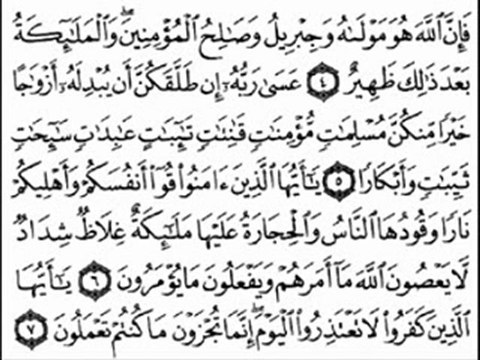 فَإِنَّ ٱللَّهَ هُوَ مَوْلَىٰهُ وَجِبْرِيلُ وَصَٰلِحُ ٱلْمُؤْمِنِينَ ۖ وَٱلْمَلَٰٓئِكَةُ
بَعْدَ ذَٰلِكَ ظَهِيرٌ ٤ عَسَىٰ رَبُّهُۥٓ إِن طَلَّقَكُنَّ أَن يُبْدِلَهُۥٓ أَزْوَٰجًا
خَيْرًا مِّنكُنَّ مُسْلِمَٰتٍ مُّؤْمِنَٰتٍ قَٰنِتَٰتٍ تَٰٓئِبَٰتٍ عَٰبِدَٰتٍ سَٰٓئِحَٰتٍ
ثَيِّبَٰتٍ وَأَبْكَارًا ٥ يَٰٓأَيُّهَا ٱلَّذِينَ ءَامَنُوا۟ قُوٓا۟ أَنفُسَكُمْ وَأَهْلِيكُمْ
نَارًا وَقُودُهَا ٱلنَّاسُ وَٱلْحِجَارَةُ عَلَيْهَا مَلَٰٓئِكَةٌ غِلَاظٌ شِدَادٌ
لَّا يَعْصُونَ ٱللَّهَ مَآ أَمَرَهُمْ وَيَفْعَلُونَ مَا يُؤْمَرُونَ ٦ يَٰٓأَيُّهَا
ٱلَّذِينَ كَفَرُوا۟ لَا تَعْتَذِرُوا۟ ٱلْيَوْمَ ۖ إِنَّمَا تُجْزَوْنَ مَا كُنتُمْ تَعْمَلُونَ ٧